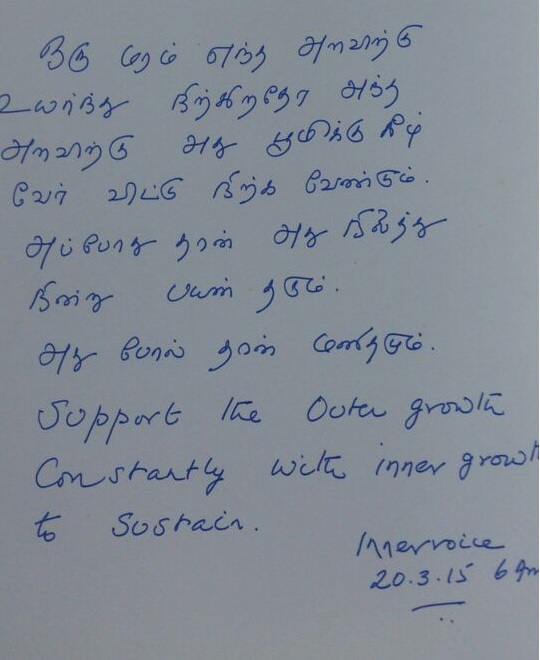 ஒரு மரம் எந்த அளவிற்கு
உயர்ந்து நிற்கிறதோ அந்த
அளவிற்கு அது பூமிக்கு கீழ்
வேர் விட்டு நிற்க வேண்டும்.
அப்போது தான் அது நிலைத்து
நின்று பயன் தரும்.
அது போல் தான் மனிதனும்.
Support the Outer growth
Constantly with inner growth
to Sustain.
Innervoice
20.3.15 6 Am